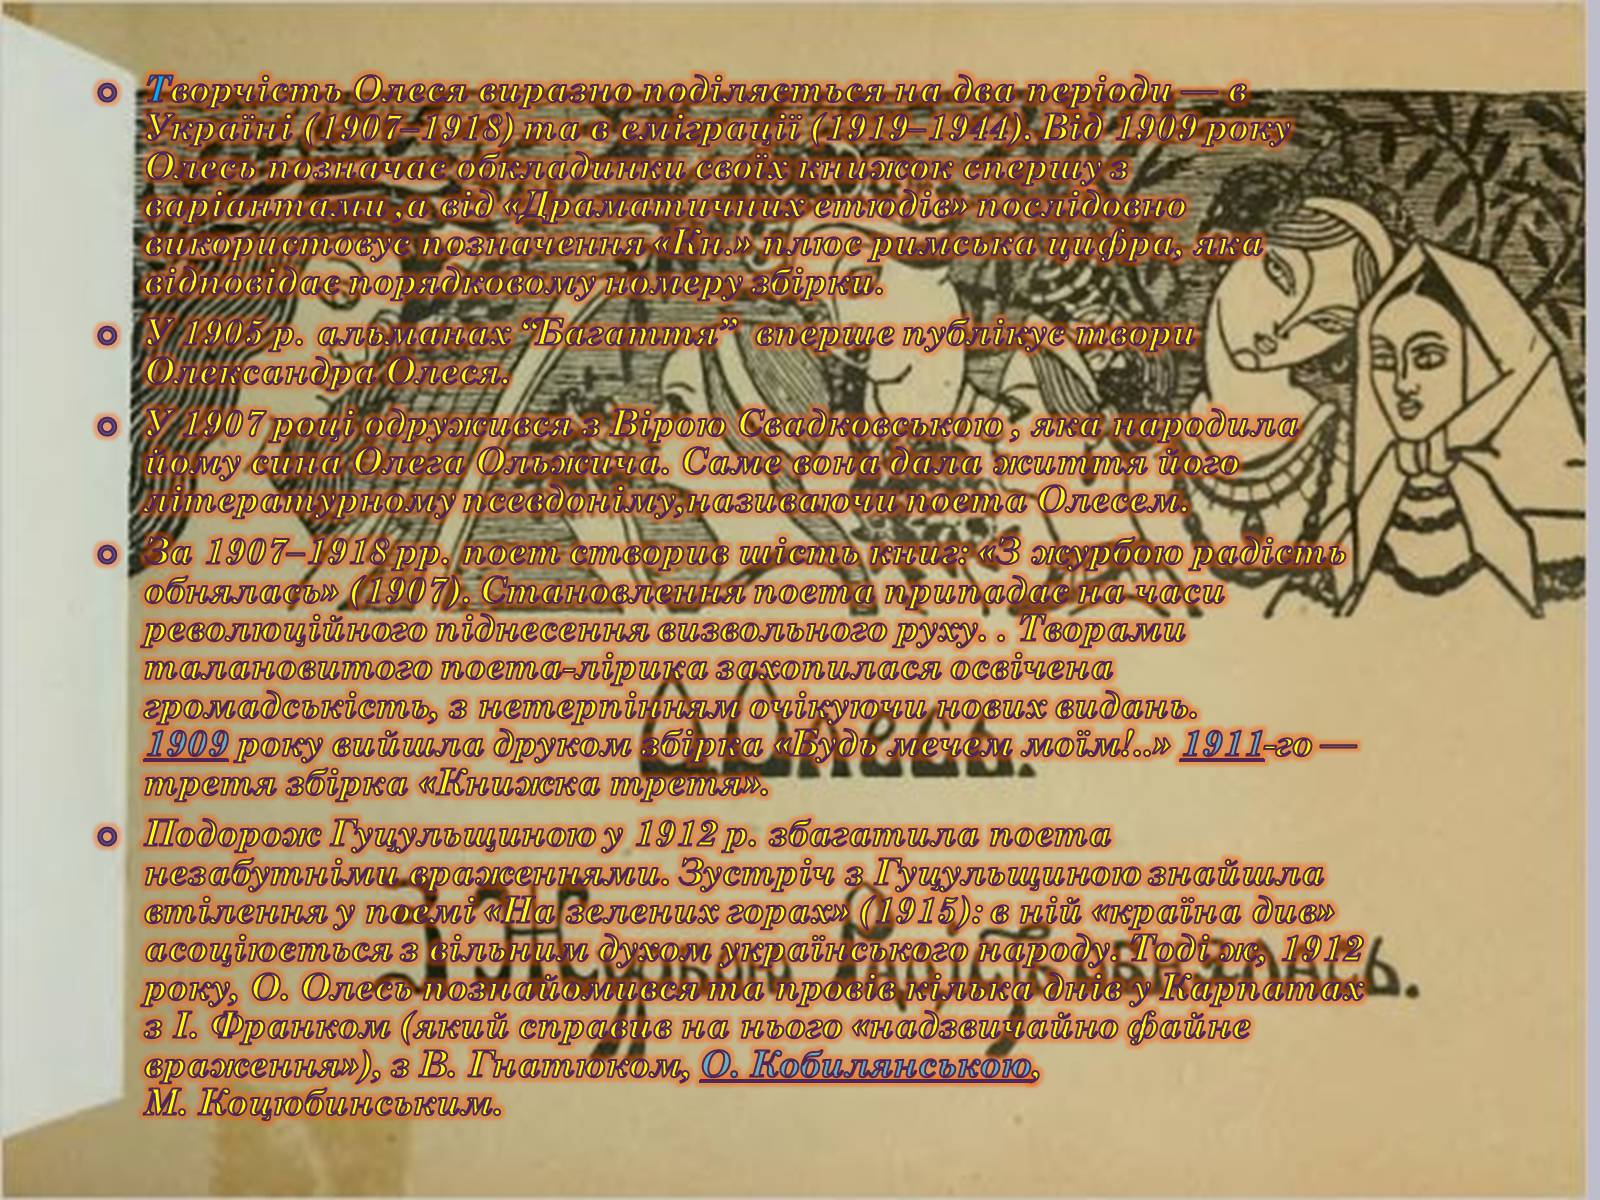 Творчість Олеся виразно поділяється на два періоди — в
Україні (1907–1918) та в еміграції (1919–1944). Від 1909 року
Олесь позначає обкладинки своїх книжок спершу з
варіантами ,а від «Драматичних етюдів» послідовно
використовує позначення «Кн.» плюс римська цифра, яка
відповідає порядковому номеру збірки.
У 1905 р. альманах “Багаття” вперше публікує твори
Олександра Олеся.
У 1907 році одружився з Вірою Свадковською , яка народила
йому сина Олега Ольжича. Саме вона дала життя його
літературному псевдоніму,називаючи поета Олесем.
За 1907–1918 рр. поет створив шість книг: «З журбою радість
обнялась» (1907). Становлення поета припадає на часи
революційного піднесення визвольного руху. . Творами
талановитого поета-лірика захопилася освічена
громадськість, з нетерпінням очікуючи нових видань.
1909 року вийшла друком збірка «Будь мечем моїм!..» 1911-го —
третя збірка «Книжка третя».
Подорож Гуцульщиною у 1912 р. збагатила поета
незабутніми враженнями. Зустріч з Гуцульщиною знайшла
втілення у поемі «На зелених горах» (1915): в ній «країна див»
асоціюється з вільним духом українського народу. Тоді ж, 1912
року, О. Олесь познайомився та провів кілька днів у Карпатах
з І. Франком (який справив на нього «надзвичайно файне
враження»), з В. Гнатюком, О. Кобилянською,
М. Коцюбинським.